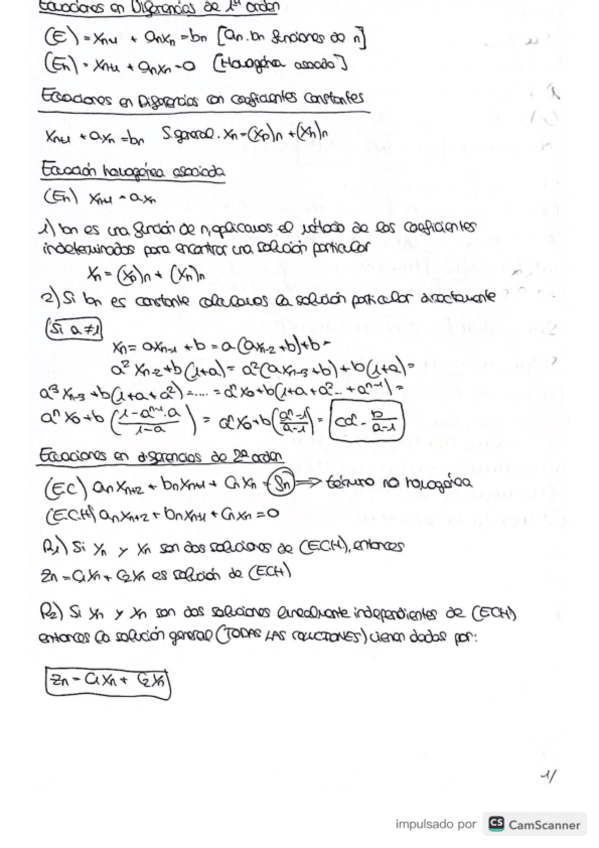 Ecuaciones en Diferencias de 1er orden
(E) = Xn+1 + anXn = bn [an, bn funciones de n]
(En) = Xn+1 + anXn = 0 [Homogénea asociada]
Ecuaciones en Diferencias con coeficientes constantes
Xn+1 + aXn = bn S.general. Xn = (Xp)n + (Xh)n
Ecuación homogénea asociada
(En) Xn+1 = aXn
1) bn es una función de n, aplicamos el método de los coeficientes
indeterminados para encontrar una solución particular
Xn = (Xp)n + (Xh)n
2) Si bn es constante calculamos la solución particular directamente
Si a ≠ 1
Xn = aXn-1 + b = a(aXn-2 + b) + b =
a² Xn-2 + b(1+a) = a²(aXn-3 + b) + b(1+a) =
a³ Xn-3 + b(1+a+a²) = .... = aⁿX0 + b(1+a+a²...+aⁿ⁻¹) =
aⁿ X0 + b (1-aⁿ⁻¹·a / 1-a) = aⁿX0 + b(aⁿ-1 / a-1) = caⁿ - b / a-1
Ecuaciones en diferencias de 2º orden
(EC) anXn+2 + bnXn+1 + CnXn = fn ⇒ término no homogéneo
(ECH) anXn+2 + bnXn+1 + CnXn = 0
P1) Si Xn y Yn son dos soluciones de (ECH), entonces
Zn = C1Xn + C2Yn es solución de (ECH)
P2) Si Xn y Yn son dos soluciones linealmente independientes de (ECH)
entonces la solución general (TODAS LAS SOLUCIONES) vienen dadas por:
Zn = C1Xn + C2Yn
1/
impulsado por CS CamScanner